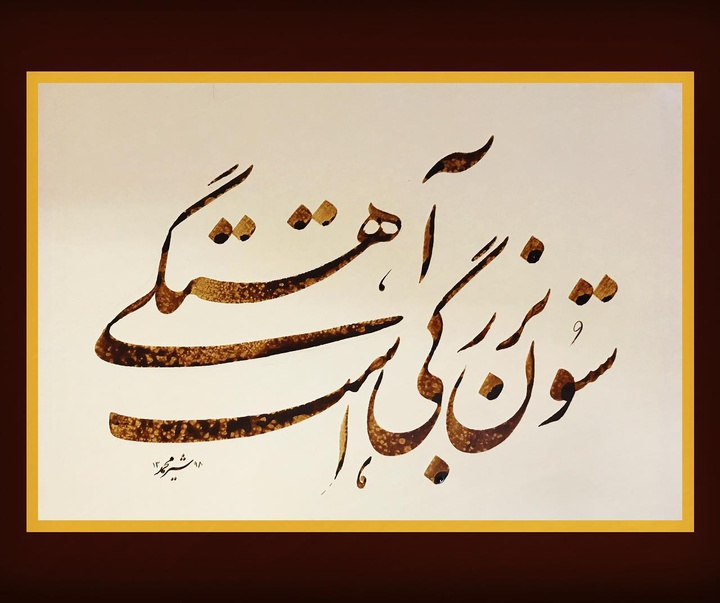 ستون بزرگی است آهستگی
شیرمحمد